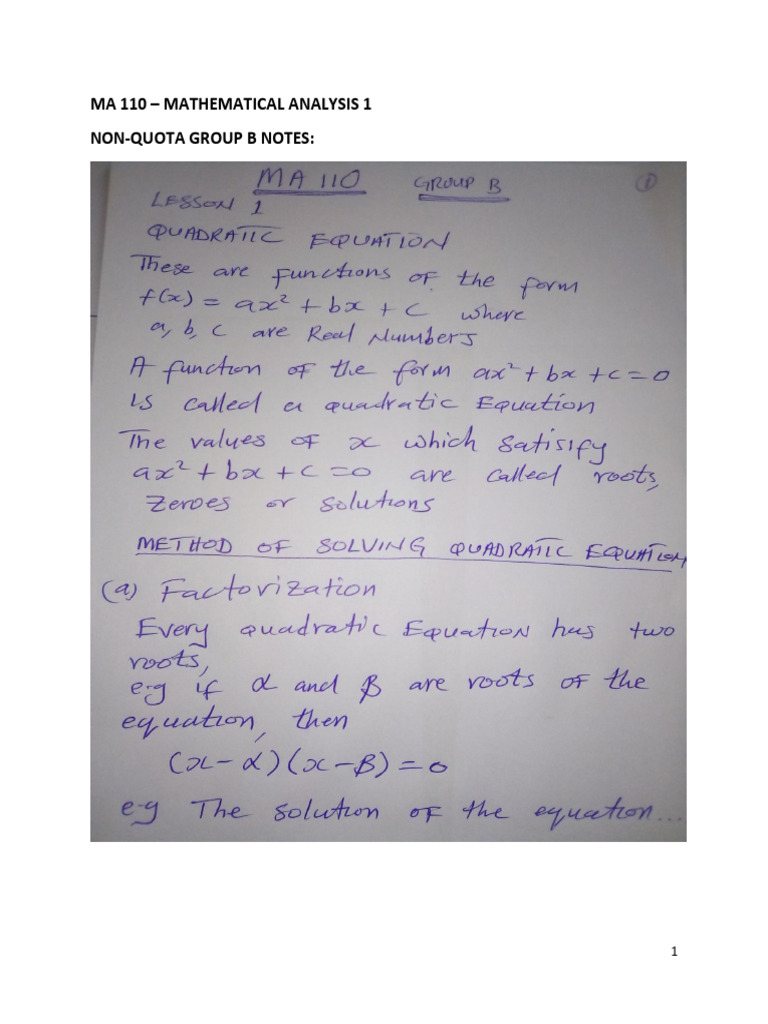 MA 110 – MATHEMATICAL ANALYSIS 1
NON-QUOTA GROUP B NOTES:
MA 110 GROUP B 1
LESSON 1
QUADRATIC EQUATION
These are functions of the form
f(x) = ax² + bx + c where
a, b, c are Real Numbers
A function of the form ax² + bx + c = 0
is called a quadratic Equation
The values of x which satisify
ax² + bx + c = 0 are called roots,
Zeroes or solutions
METHOD OF SOLVING QUADRATIC EQUATION
(a) Factorization
Every quadratic Equation has two
roots,
e.g if α and β are roots of the
equation, then
(x - α)(x - β) = 0
e-g The solution of the equation...
1